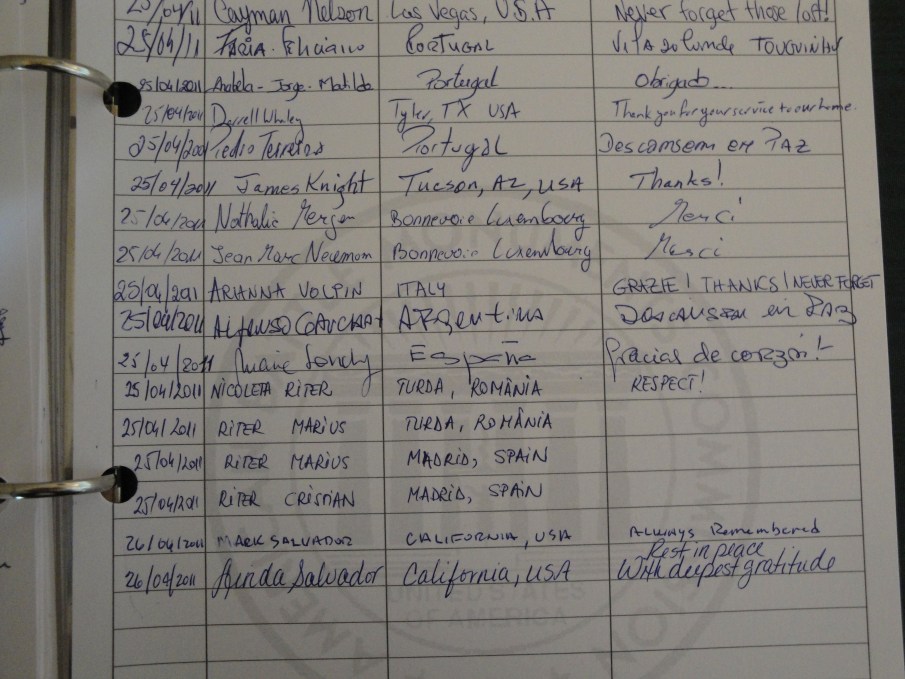 25/04/11 Cayman Nelson Las Vegas, U.S.A Never forget those lost!
25/04/11 Feliciano Portugal
25/04/2011 Jorge - Matilde Portugal Obrigado...
25/04/2011 Darrell Whaley Tyler, TX USA Thank you for your service to our home.
25/04/2011 Pedro Ferreira Portugal Descansem em Paz
25/04/2011 James Knight Tucson, AZ, USA Thanks!
25/04/2011 Nathalie Mergen Bonnevoie Luxembourg Merci
25/04/2011 Jean Marc Neumann Bonnevoie Luxembourg Merci
25/04/2011 ARIANNA VOLPIN ITALY GRAZIE! THANKS! NEVER FORGET
25/04/2011 ALFONSO ARgentinA Descansen en Paz
25/04/2011 España Gracias de corazón!
25/04/2011 NICOLETA RITER TURDA, ROMÂNIA RESPECT!
25/04/2011 RITER MARIUS TURDA, ROMÂNIA
25/04/2011 RITER MARIUS MADRID, SPAIN
25/04/2011 RITER CRISTIAN MADRID, SPAIN
26/04/2011 MARK SALVADOR CALIFORNIA, USA Always Remembered
Rest in peace
26/04/2011 Linda Salvador California, USA With deepest gratitude
UNITED STATES
OF AMERICA